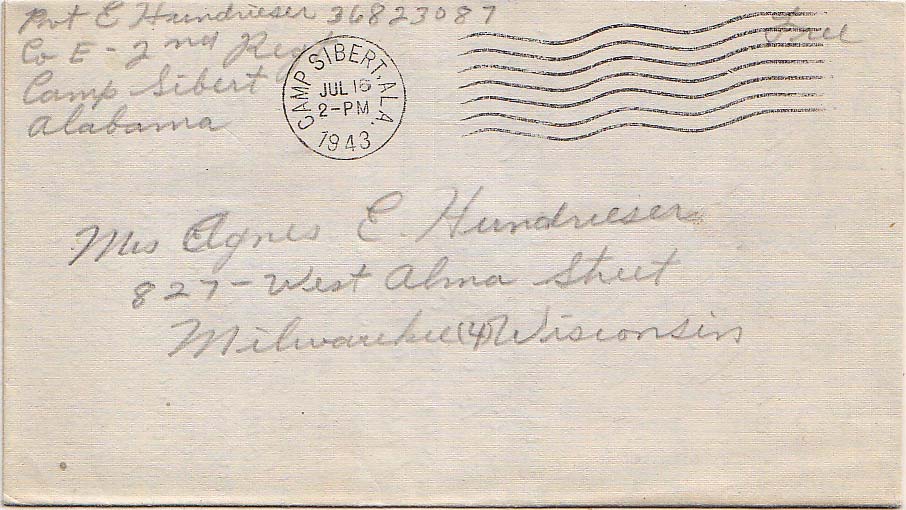 Pvt E Hundrieser 36823087
Co E - 2nd Regt
Camp Sibert
Alabama
CAMP SIBERT, ALA.
JUL 16
2-PM
1943
Free
Mrs Agnes E. Hundrieser
827 - West Alma Street
Milwaukee (4) Wisconsin